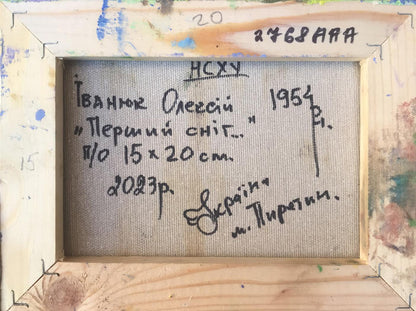 20
2768AAA
НСХУ
Іванюк Олексій 1954 р.н.
"Перший сніг..."
п/о 15 х 20 cm.
15
2023р.
Україна
м. Пирятин.